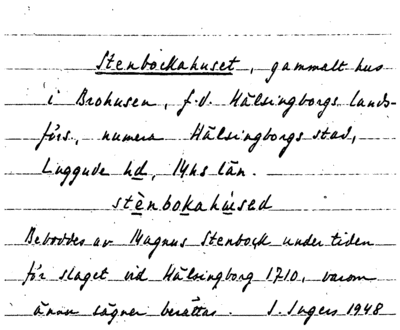 Stenbockahuset, gammalt hus
i Brohusen, f.d. Hälsingborgs lands-
förs., numera Hälsingborgs stad,
Luggude hd, Mhs län.
stènbokahúsed
Beboddes av Magnus Stenbock under tiden
för slaget vid Hälsingborg 1710, varom
ännu sägner berättas. I. Ingers 1948